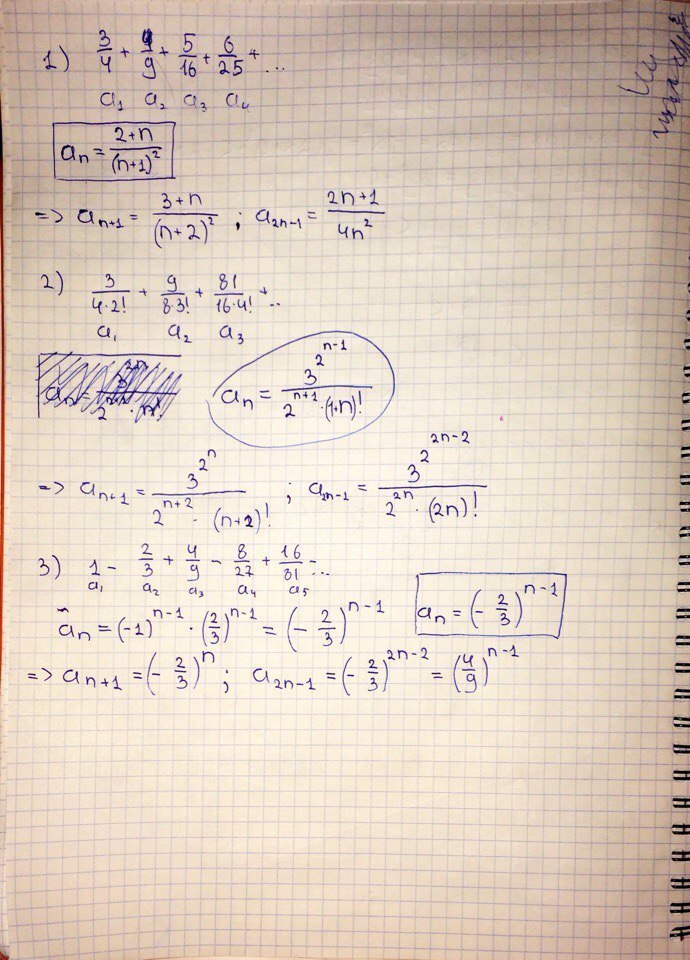 1) 3/4 + 4/9 + 5/16 + 6/25 + ...
a₁ a₂ a₃ a₄
aₙ = (2+n)/(n+1)²
=> aₙ₊₁ = (3+n)/(n+2)² ; a₂ₙ₋₁ = (2n+1)/4n²
2) 3/(4·2!) + 9/(8·3!) + 81/(16·4!) + ..
a₁ a₂ a₃
aₙ = 3^(2^(n-1))/(2^(n+1)·(1+n)!)
=> aₙ₊₁ = 3^(2^n)/(2^(n+2)·(n+2)!) ; a₂ₙ₋₁ = 3^(2^(2n-2))/(2^(2n)·(2n)!)
3) 1 - 2/3 + 4/9 - 8/27 + 16/81 - ...
a₁ a₂ a₃ a₄ a₅
aₙ = (-2/3)^(n-1)
aₙ = (-1)^(n-1)·(2/3)^(n-1) = (-2/3)^(n-1)
=> aₙ₊₁ = (-2/3)^n ; a₂ₙ₋₁ = (-2/3)^(2n-2) = (4/9)^(n-1)